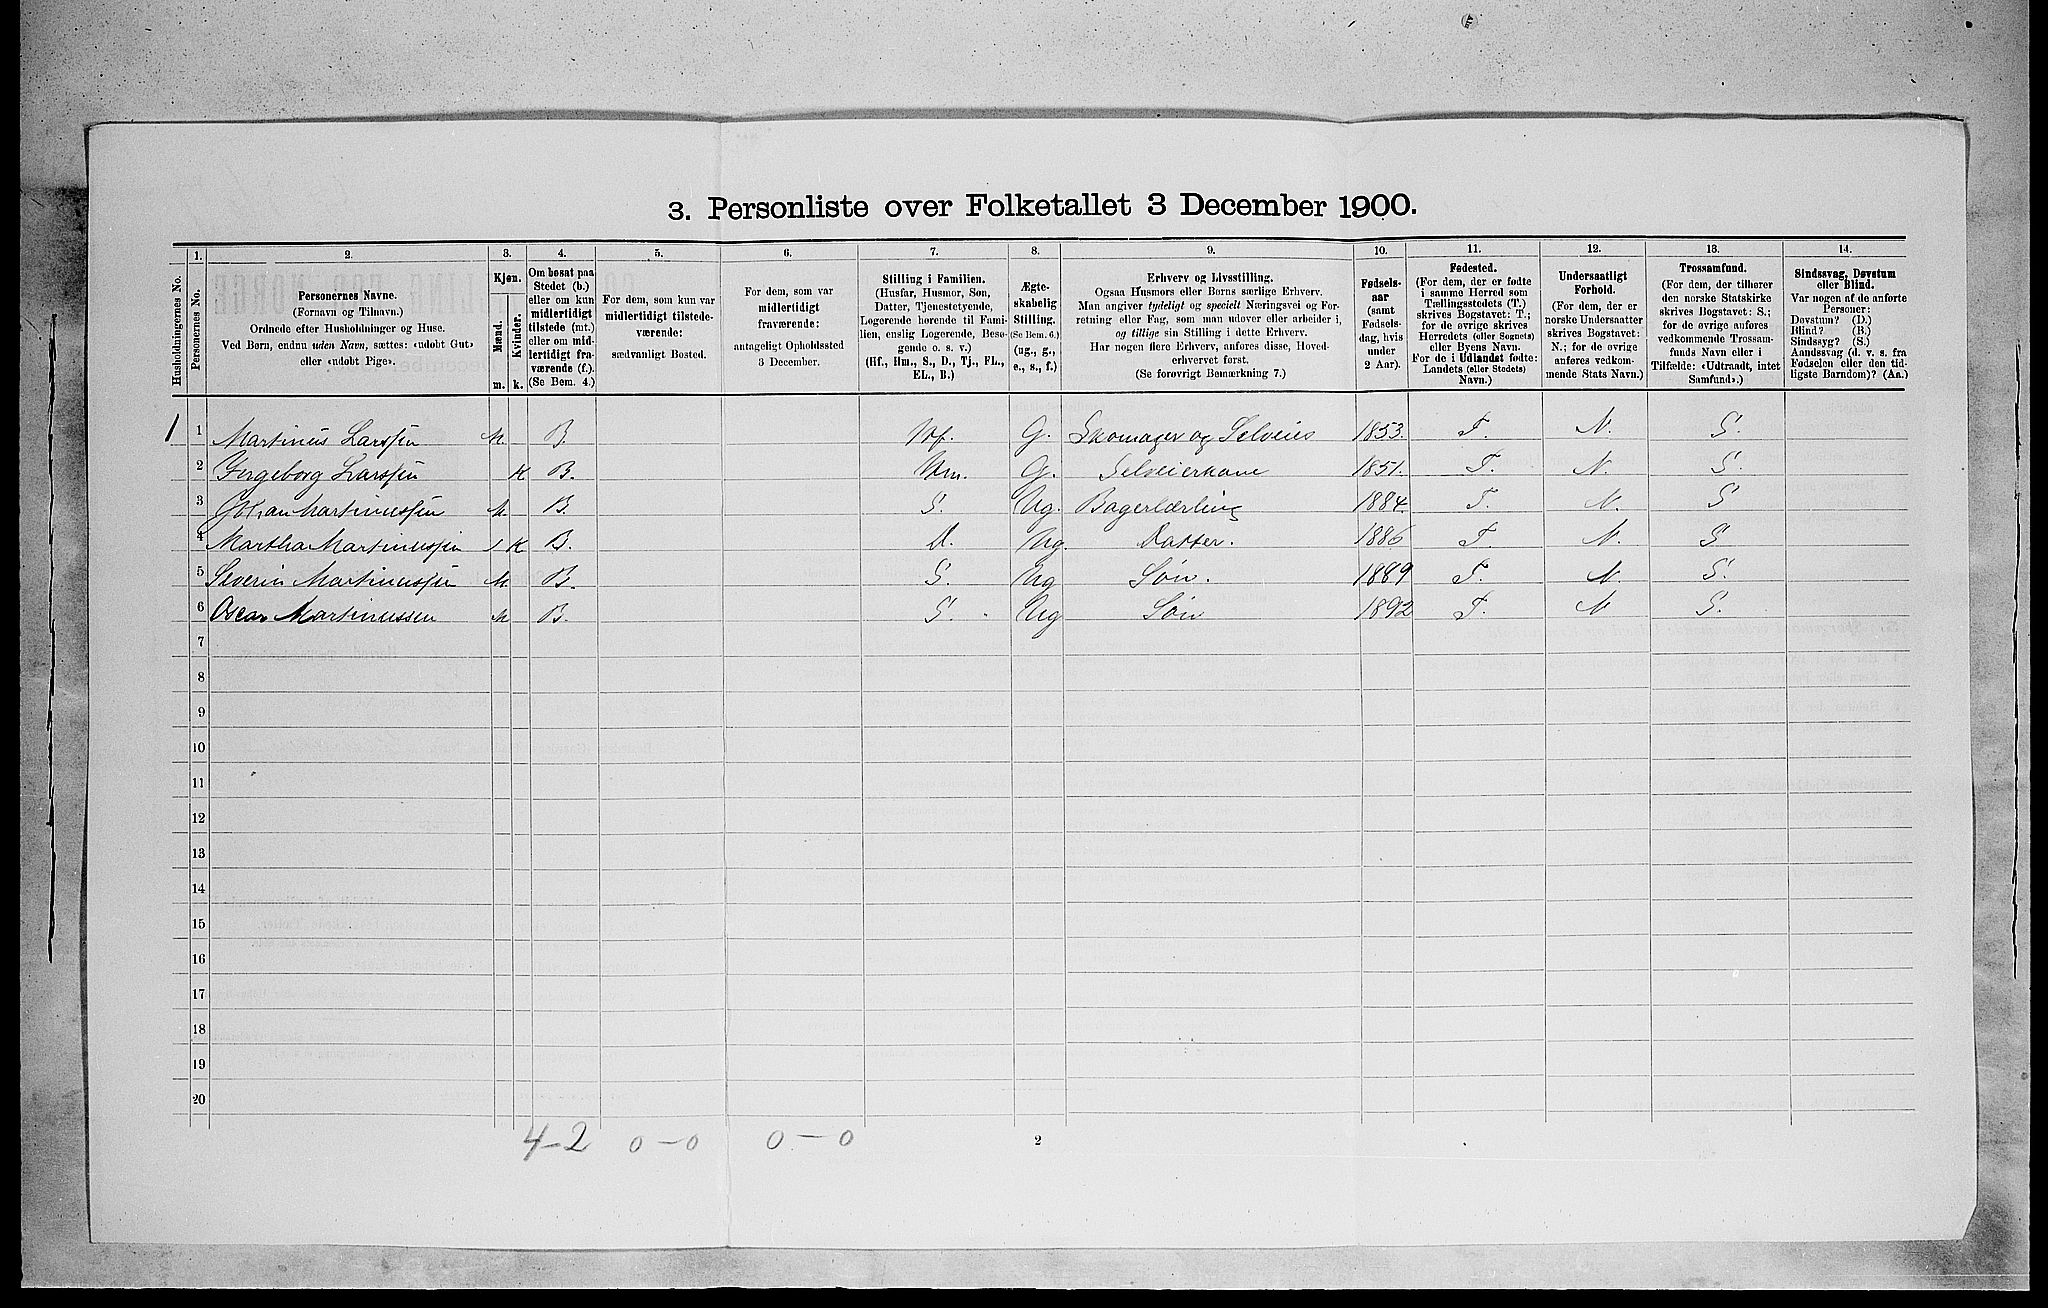 3. Personliste over Folketallet 3 December 1900.
1. 2. 3. 4. 5. 6. 7. 8. 9. 10. 11. 12. 13. 14.
Husholdningernes No.
Personernes No.
Personernes Navne.
(Fornavn og Tilnavn.)
Ordnede efter Husholdninger og Huse.
Ved Børn, endnu uden Navn, sættes: «udøbt Gut»
eller «udøbt Pige».
Kjøn.
Mænd.
Kvinder.
m. k.
Om bosat paa
Stedet (b.)
eller om kun
midlertidigt
tilstede (mt.)
eller om mid-
lertidigt fra-
værende (f.).
(Se Bem. 4.)
For dem, som kun var
midlertidigt tilstede-
værende:
sædvanligt Bosted.
For dem, som var
midlertidigt
fraværende:
antageligt Opholdssted
3 December.
Stilling i Familien.
(Husfar, Husmor, Søn,
Datter, Tjenestetyende,
Logerende hørende til Fami-
lien, enslig Logerende, Besø-
gende o. s. v.)
(Hf., Hm., S., D., Tj., FL.,
EL., B.)
Ægte-
skabelig
Stilling.
(Se Bem. 6.)
(ug., g.,
e., s., f.)
Erhverv og Livsstilling.
Ogsaa Husmors eller Børns særlige Erhverv.
Man angiver tydeligt og specielt Næringsvei og For-
retning eller Fag, som man udøver eller arbeider i,
og tillige sin Stilling i dette Erhverv.
Har nogen flere Erhverv, anføres disse, Hoved-
erhvervet først.
(Se forøvrigt Bemærkning 7.)
Fødsels-
aar
(samt
Fødsels-
dag, hvis
under
2 Aar).
Fødested.
(For dem, der er fødte
i samme Herred som
Tællingsstedets (T.)
skrives Bogstavet: T.;
for de øvrige skrives
Herredets (eller Sognets)
eller Byens Navn.
For de i Udlandet fødte:
Landets (eller Stedets)
Navn.)
Undersaatligt
Forhold.
(For dem, der er
norske Undersaatter
skrives Bogstavet:
N.; for de øvrige
anføres vedkom-
mende Stats Navn.)
Trossamfund.
(For dem, der tilhører
den norske Statskirke
skrives Bogstavet: S.;
for de øvrige anføres
vedkommende Trossam-
funds Navn eller i
Tilfælde: «Udtraadt, intet
Samfund».)
Sindssvag, Døvstum
eller Blind.
Var nogen af de anførte
Personer:
Døvstum? (D.)
Blind? (B.)
Sindssyg? (S.)
Aandssvag (d. v. s. fra
Fødselen eller den tid-
ligste Barndom)? (Aa.)
1 1 Martinus Larssen M. B. Hf. G. Skomager og Selveier 1853. T. N. S.
2 Ingeborg Larssen K B. Hm. G. Selveierkone 1851. T. N. S.
3 Johan Martinussen M. B. S. Ug. Bagerlærling 1884. T. N. S
4 Martha Martinussen K B. D. Ug. Datter. 1886 T. N. S
5 Severin Martinussen M B. S. Ug Søn. 1889 T. N. S.
6 Oscar Martinussen M B. S. Ug Søn 1892 T. N S.
7
8
9
10
11
12
13
14
15
16
17
18
19
20
4-2 0-0 0-0 2